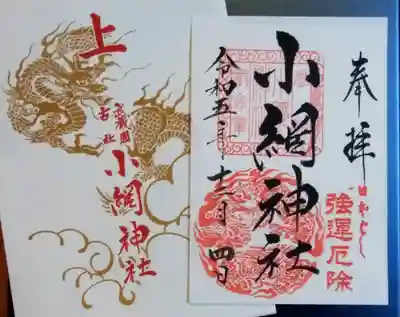 上
武蔵国
古社
小網神社
奉拝
強運厄除
小網神社
令和五年十二月四日